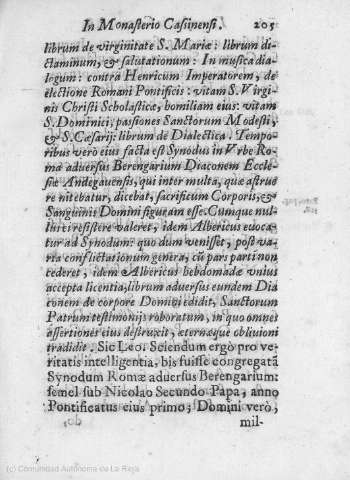 In Monasterio Casinensi. 205
librum de virginitate S. Mariæ: librum di-
ctaminum, & salutationum: In musica dia-
logum: contra Henricum Imperatorem, de
electione Romani Pontificis: vitam S. Virgi-
nis Christi Scholasticæ, homiliam eius: vitam
S. Dominici, passiones Sanctorum Modesti,
& S. Cæsarij: librum de Dialectica. Tempo-
ribus verò eius facta est Synodus in Vrbe Ro-
ma aduersus Berengarium Diaconem Eccle-
siæ Andegauensis, qui inter multa, quæ astrue
re nitebatur, dicebat, sacrificum Corporis, &
Sanguinis Domini figuram esse. Cumque nul-
lus ei resistere valeret, idem Albericus euoca-
tur ad Synodum: quo dum venisset, post va-
ria conflictationum genera, cũ pars parti non
cederet, idem Albericus hebdomadæ vnius
accepta licentia, librum aduersus eundem Dia
conem de corpore Domini edidit, Sanctorum
Patrum testimonijs roboratum, in quo omnes
assertiones eius destruxit, æternæque obliuioni
tradidit. Sic Leo. Sciendum ergò pro ve-
ritatis intelligentia, bis fuisse congregatã
Synodum Romæ aduersus Berengarium:
semel sub Nicolao Secundo Papa, anno
Pontificatus eius primo; Domini verò,
mil-
(c) Comunidad Autónoma de La Rioja